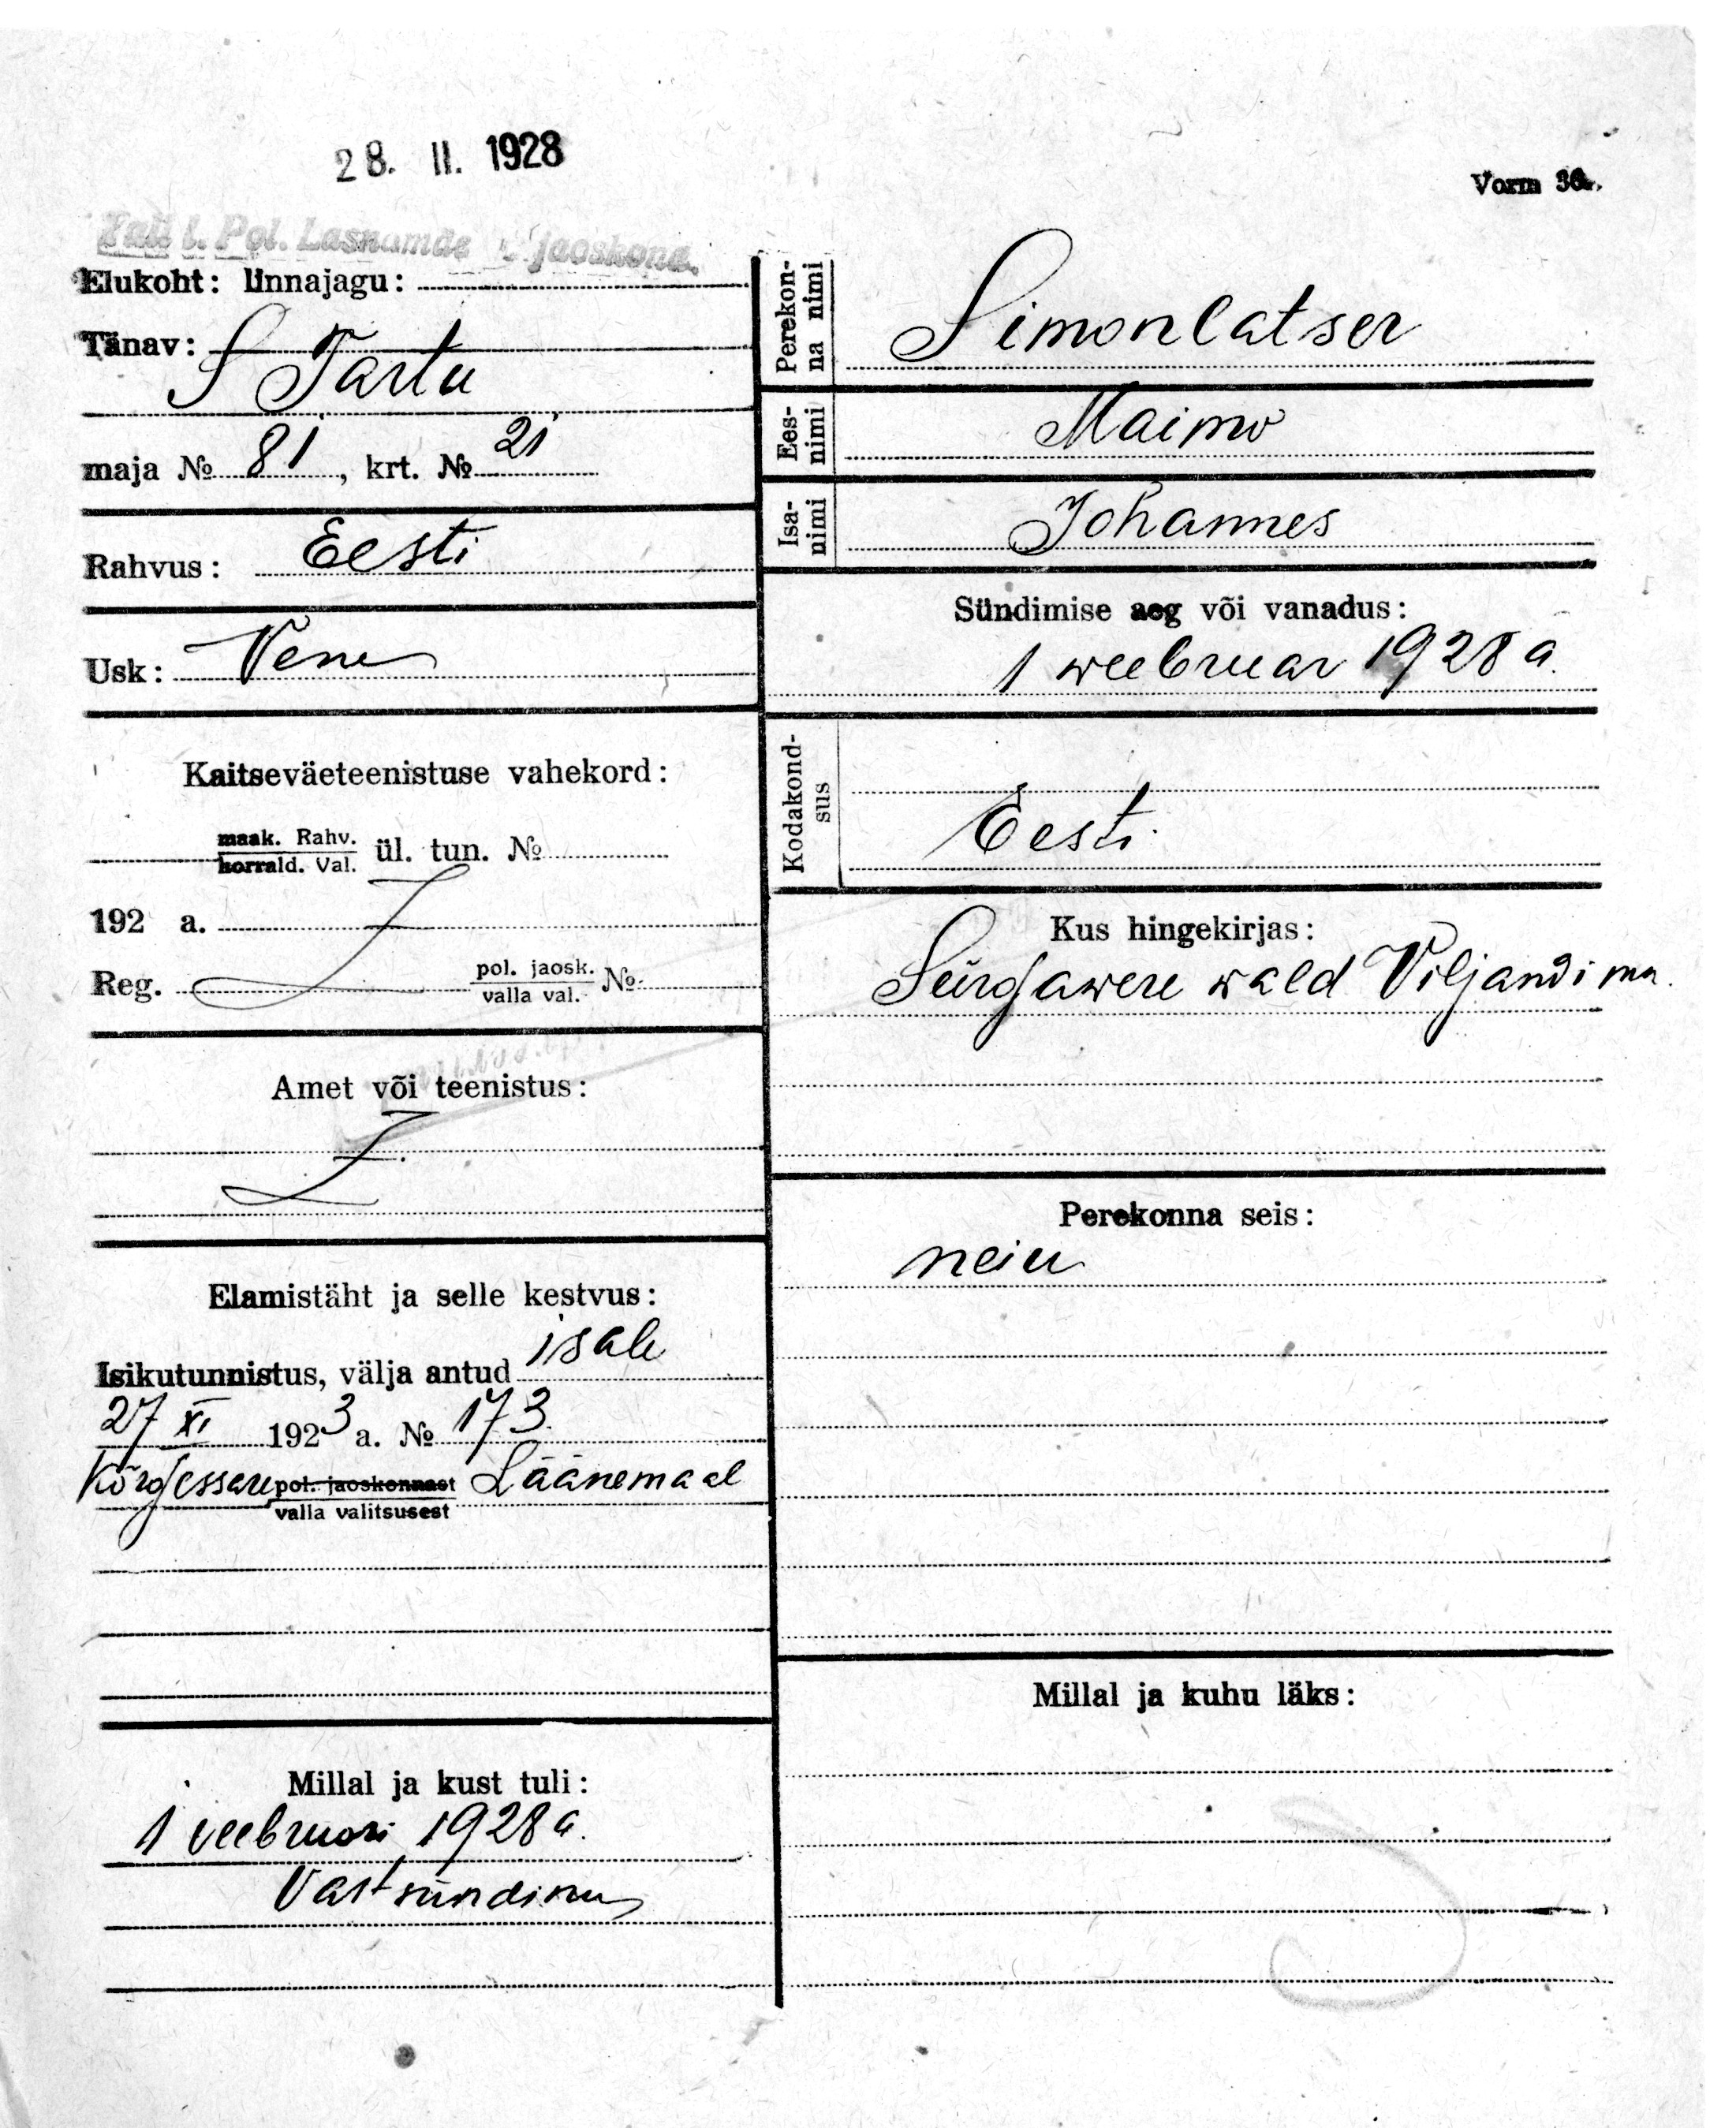 28. II. 1928
Vorm 36.
Tall l. Pol. Lasnamäe jaoskond.
Elukoht: linnajagu:
Tänav:
S Tartu
maja № 81, krt. № 21
Rahvus: Eesti
Usk: Vene
Kaitseväeteenistuse vahekord:
maak. Rahv.
korrald. Val. ül. tun. №
192 a.
Reg. pol. jaosk. №
valla val.
Amet või teenistus:
Elamistäht ja selle kestvus:
Isikutunnistus, välja antud isale
27 XI 1923 a. № 173
Kõrgessare pol. jaoskonnast Läänemaal
valla valitsusest
Millal ja kust tuli:
1 veebruari 1928 a.
Vastsündinu
Perekon-
na nimi
Simonlatser
Ees-
nimi
Maimo
Isa-
nimi
Johannes
Sündimise aeg või vanadus:
1 weebruar 1928 a.
Kodakond-
sus
Eesti
Kus hingekirjas:
Sürgawere wald Viljandi ma.
Perekonna seis:
neiu
Millal ja kuhu läks: